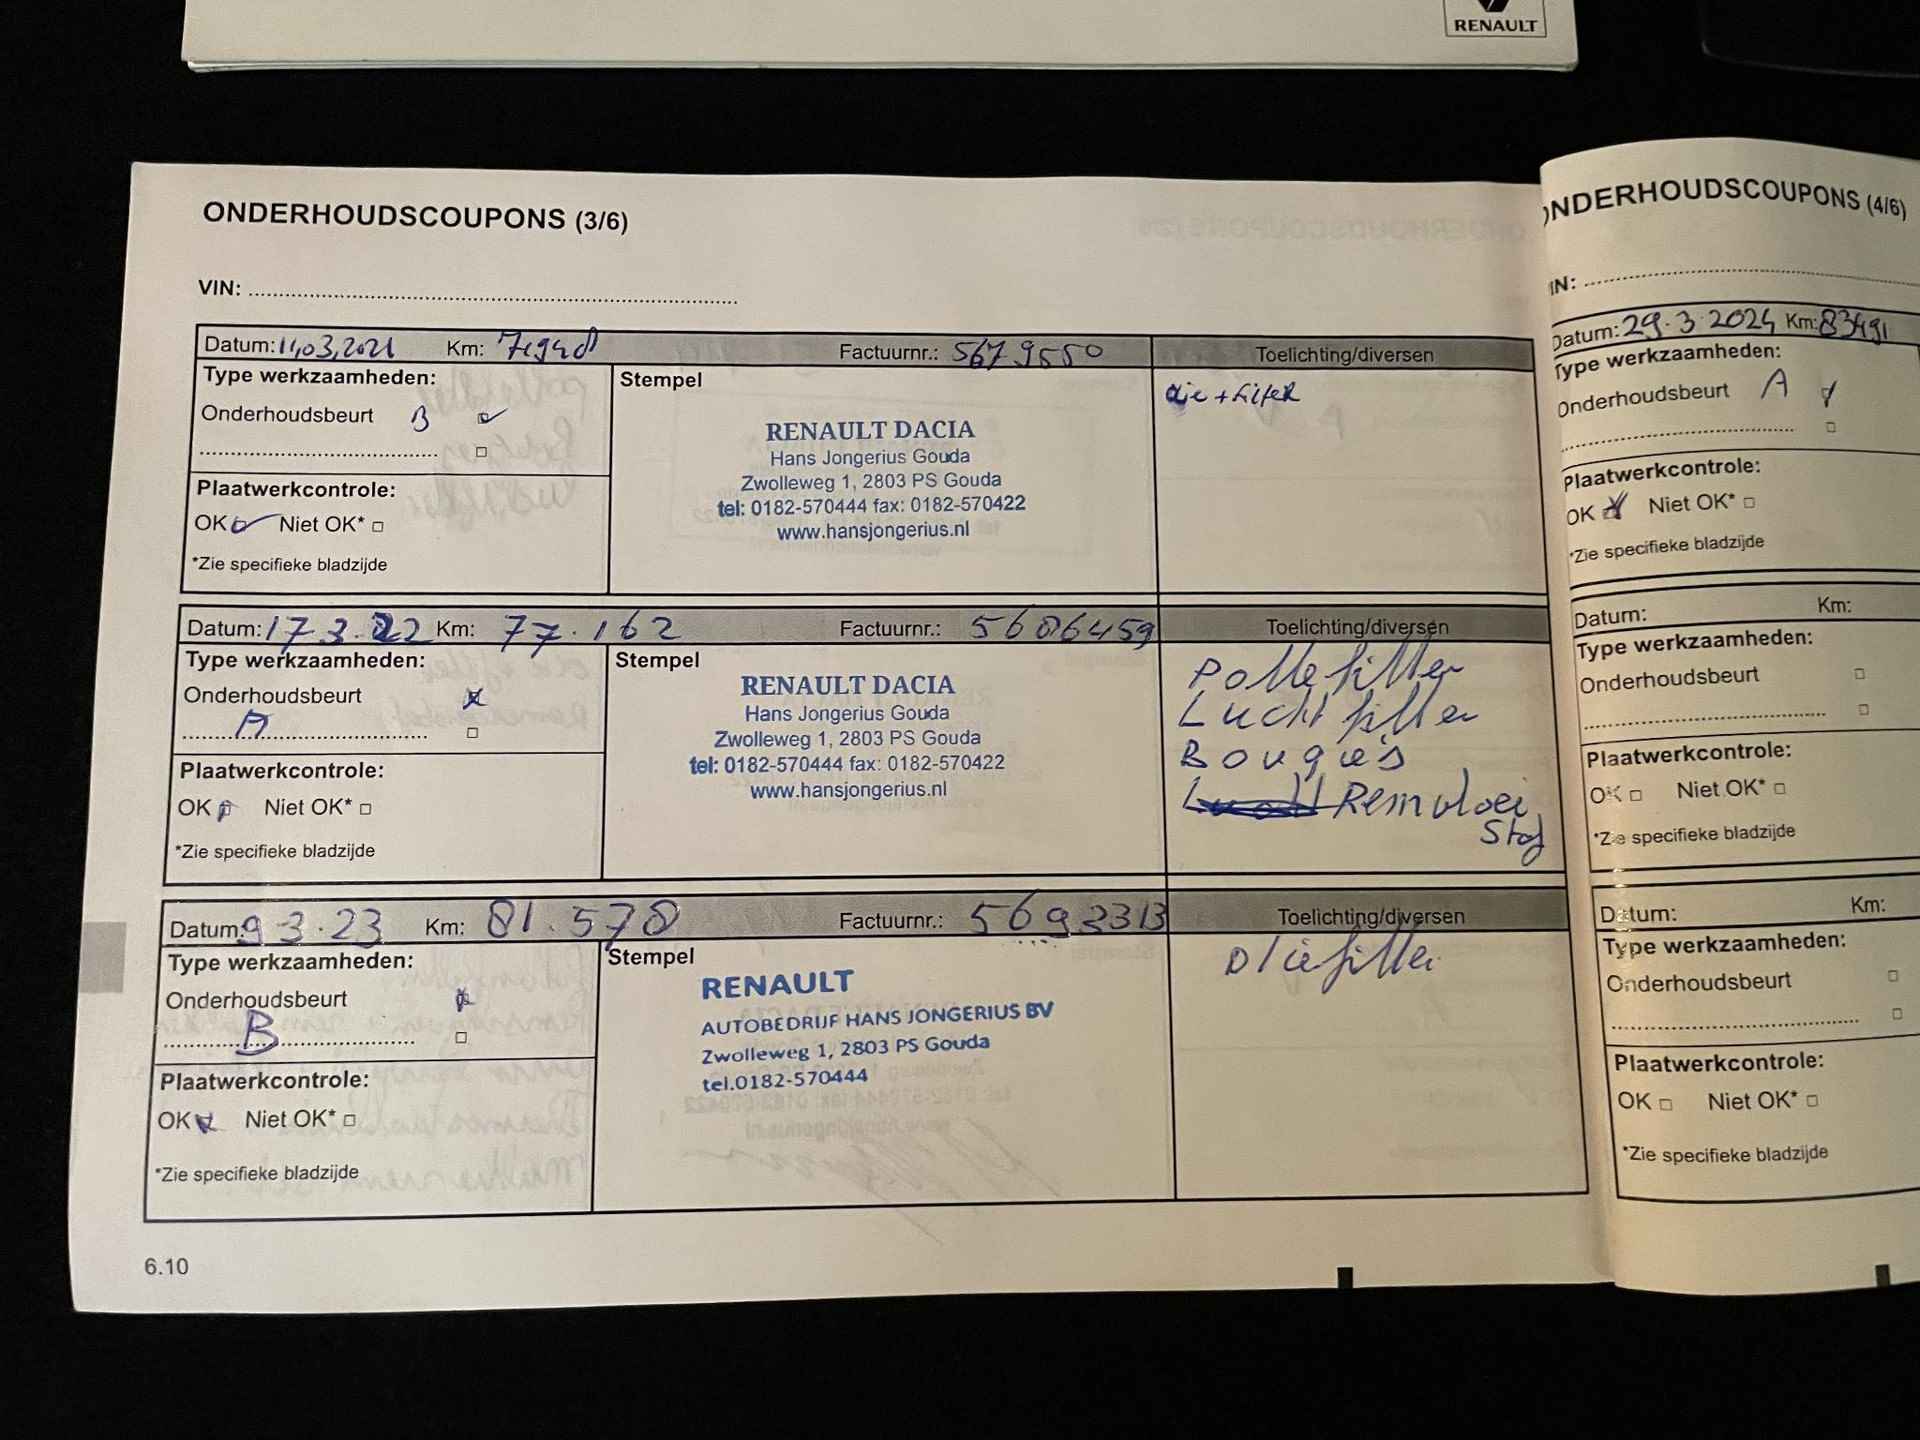 RENAULT
ONDERHOUDSCOUPONS (3/6)
VIN:
Datum: 11,03,2021 Km: Factuurnr.: 5679550 Toelichting/diversen
Type werkzaamheden:
Onderhoudsbeurt B
Plaatwerkcontrole:
OK Niet OK*
*Zie specifieke bladzijde
Stempel
RENAULT DACIA
Hans Jongerius Gouda
Zwolleweg 1, 2803 PS Gouda
tel: 0182-570444 fax: 0182-570422
www.hansjongerius.nl
olie + filter
Datum: 17.3.22 Km: 77.162 Factuurnr.: 5686459 Toelichting/diversen
Type werkzaamheden:
Onderhoudsbeurt
A
Plaatwerkcontrole:
OK Niet OK*
*Zie specifieke bladzijde
Stempel
RENAULT DACIA
Hans Jongerius Gouda
Zwolleweg 1, 2803 PS Gouda
tel: 0182-570444 fax: 0182-570422
www.hansjongerius.nl
Pollefilter
Lucht filter
Bougie's
Remvloei
stof
Datum: 9 3.23 Km: 81.578 Factuurnr.: 5692313 Toelichting/diversen
Type werkzaamheden:
Onderhoudsbeurt
B
Plaatwerkcontrole:
OK Niet OK*
*Zie specifieke bladzijde
Stempel
RENAULT
AUTOBEDRIJF HANS JONGERIUS BV
Zwolleweg 1, 2803 PS Gouda
tel.0182-570444
Oliefilter
6.10
ONDERHOUDSCOUPONS (4/6)
VIN:
Datum: 29.3.2024 Km: 83491
Type werkzaamheden:
Onderhoudsbeurt A
Plaatwerkcontrole:
OK Niet OK*
*Zie specifieke bladzijde
Datum: Km:
Type werkzaamheden:
Onderhoudsbeurt
Plaatwerkcontrole:
OK Niet OK*
*Zie specifieke bladzijde
Datum: Km:
Type werkzaamheden:
Onderhoudsbeurt
Plaatwerkcontrole:
OK Niet OK*
*Zie specifieke bladzijde